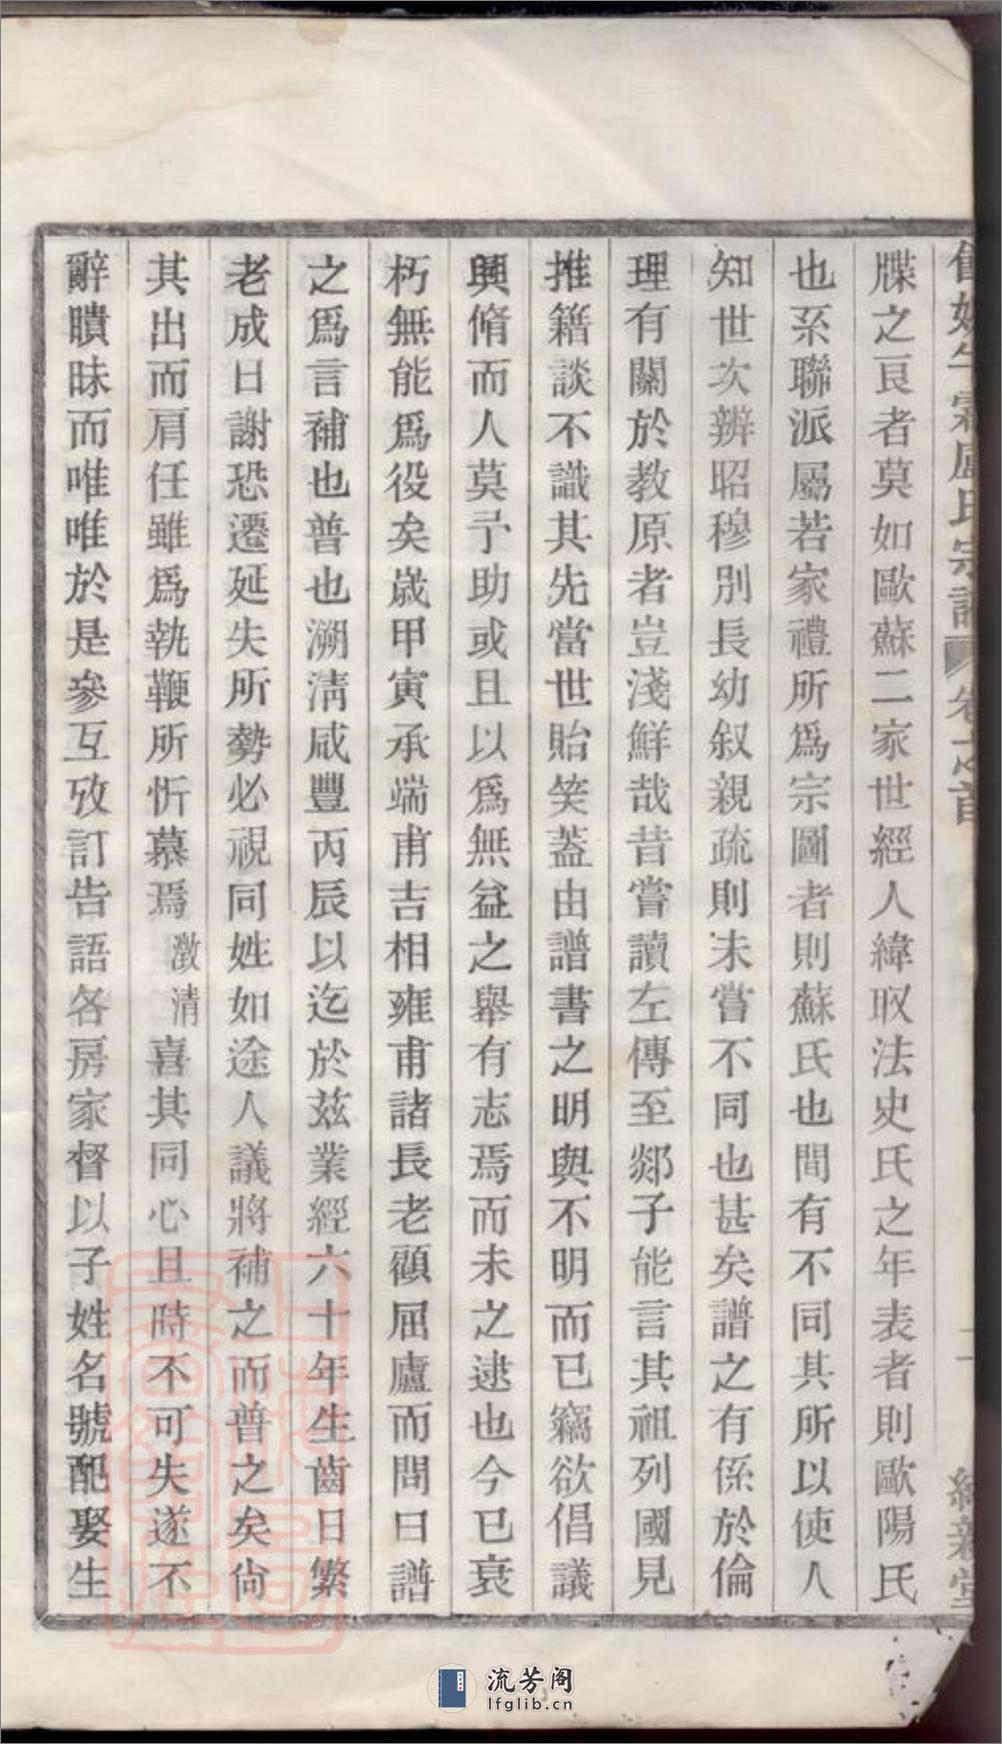 盧氏宗譜 卷之首 二
牒之良者莫如歐蘇二家世經人緯取法史氏之年表者則歐陽氏
也系聯派屬若家禮所爲宗圖者則蘇氏也間有不同其所以使人
知世次辨昭穆別長幼叙親疏則未嘗不同也甚矣譜之有係於倫
理有關於教原者豈淺鮮哉昔嘗讀左傳至郯子能言其祖列國見
推籍談不識其先當世貽笑蓋由譜書之明與不明而已竊欲倡議
興脩而人莫予助或且以爲無益之舉有志焉而未之逮也今已衰
朽無能爲役矣歲甲寅承端甫吉相雍甫諸長老顧屈廬而問曰譜
之爲言補也普也溯淸咸豐丙辰以迄於茲業經六十年生齒日繁
老成日謝恐遷延失所勢必視同姓如途人議將補之而普之矣尙
其出而肩任雖爲執鞭所忻慕焉澂清喜其同心且時不可失遂不
辭聵昧而唯唯於是參互攷訂告語各房家督以子姓名號配娶生
流芳阁
lfglib.cn